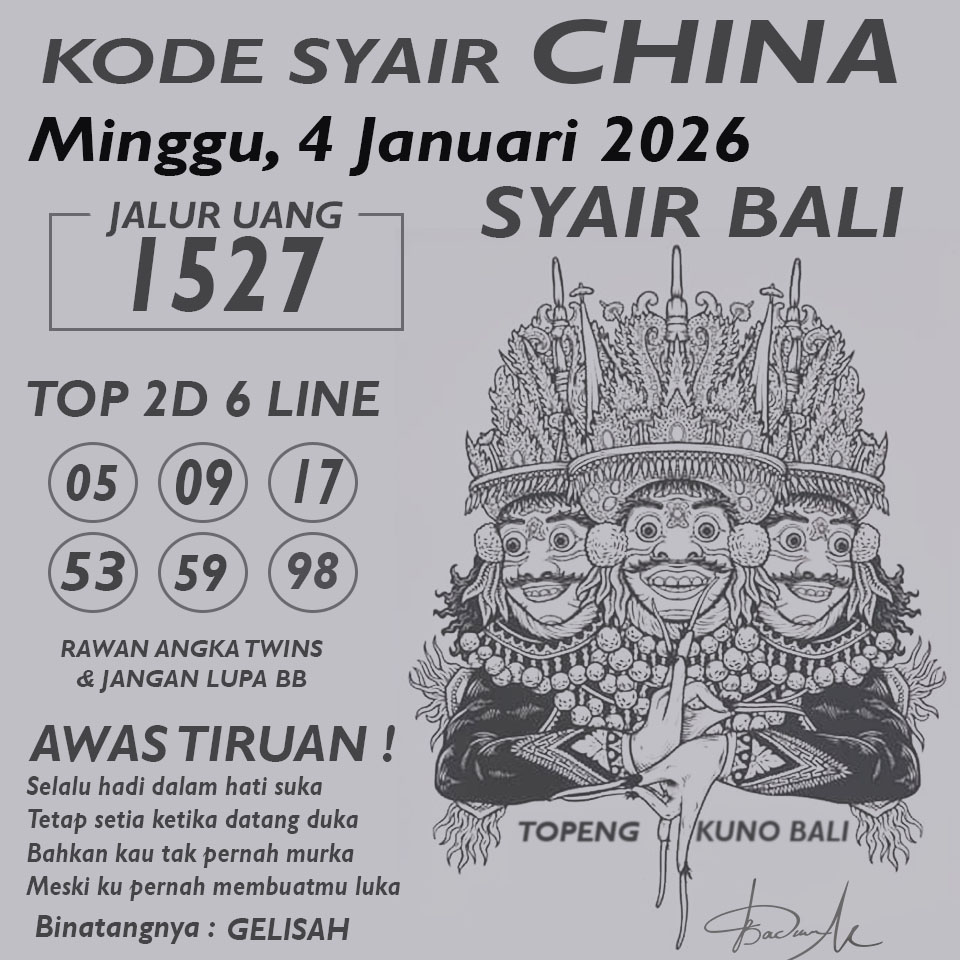 KODE SYAIR CHINA
Minggu, 4 Januari 2026
SYAIR BALI
JALUR UANG
1527
TOP 2D 6 LINE
05 09 17
53 59 98
RAWAN ANGKA TWINS
& JANGAN LUPA BB
AWAS TIRUAN !
Selalu hadi dalam hati suka
Tetap setia ketika datang duka
Bahkan kau tak pernah murka
Meski ku pernah membuatmu luka
Binatangnya : GELISAH
TOPENG KUNO BALI